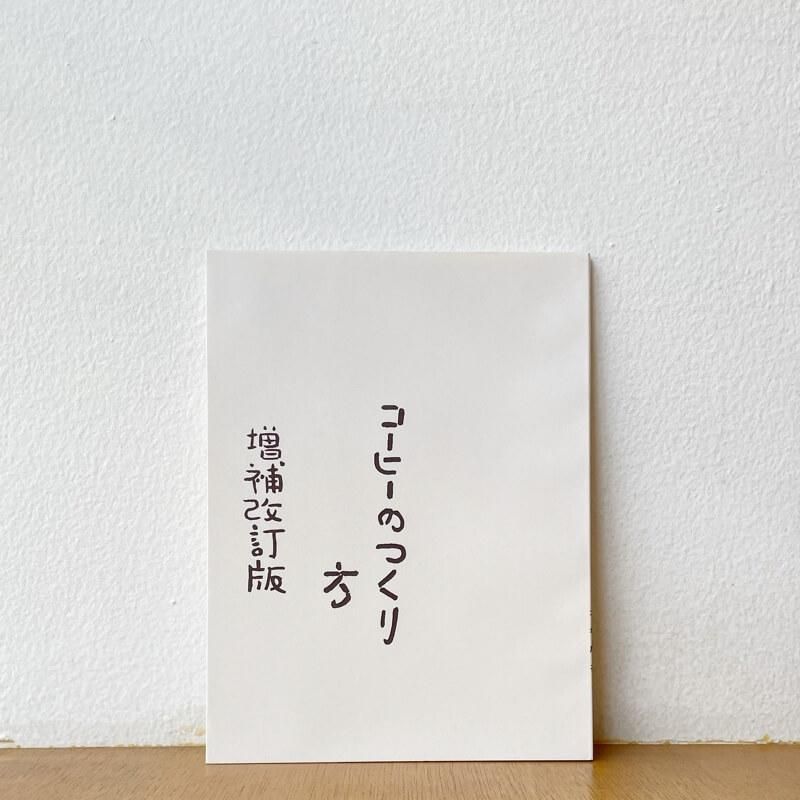 コーヒーのつくり
方
増補改訂版